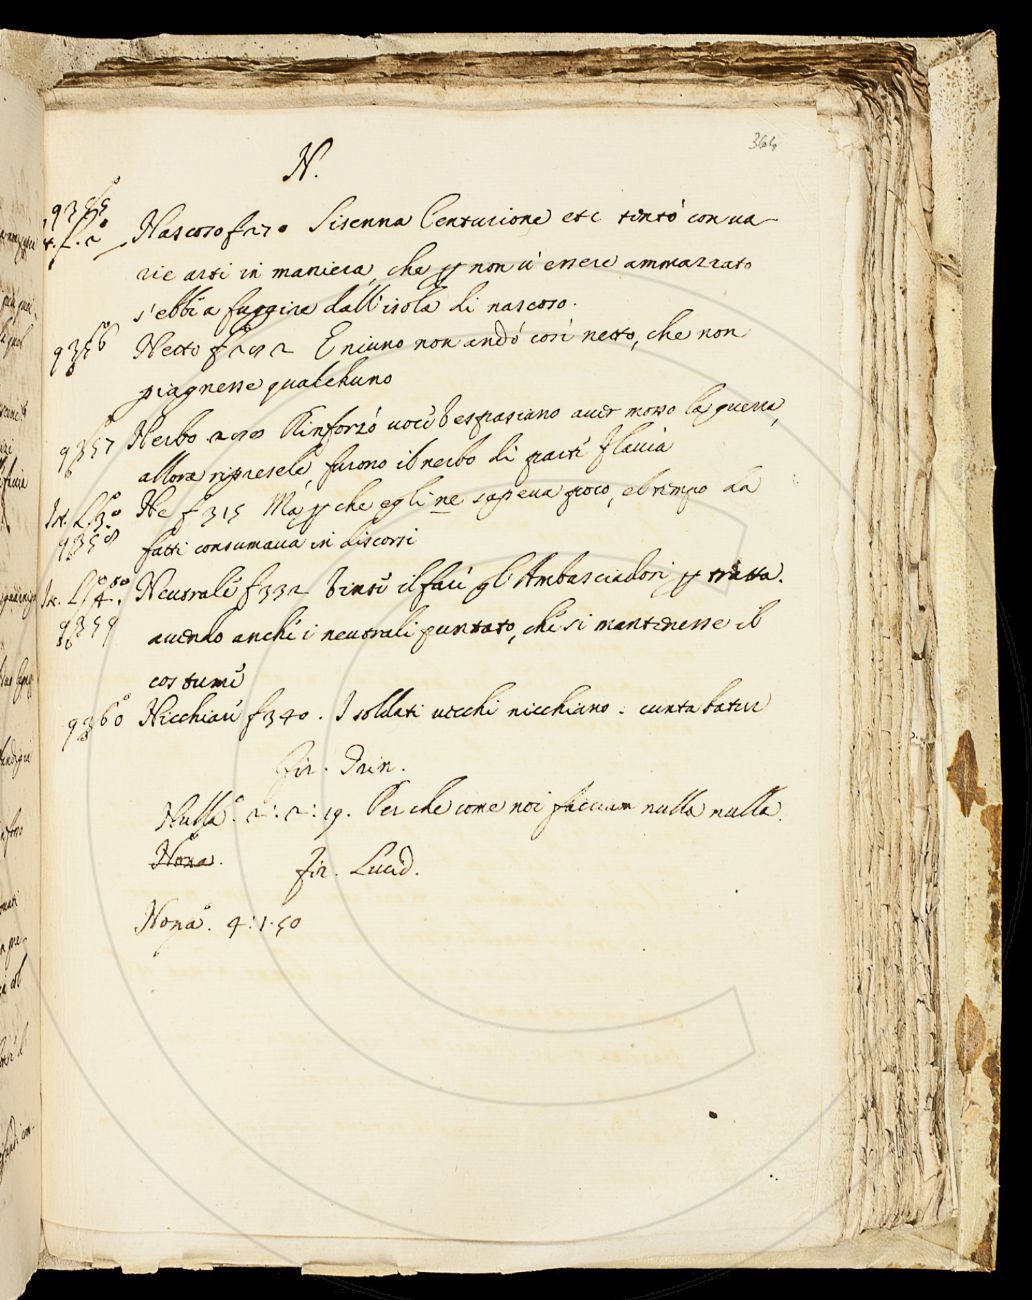 N.
364
9355
Nascoso f 270 Sisenna Centurione etc tentò con va-
rie arti in maniera, che p non v'essere ammazzato
s'ebbe a fuggire dall'isola di nascoso.
9356
Netto f 292 E niuno non andò così netto, che non
piagnesse qualchuno
9357
Nerbo 299 Rinforzò voce Vespasiano aver mosso la guerra,
allora ripresele, furono il nerbo di parte Flavia
9358
Ne f 315 Ma p che egli ne sapeva poco, e'l tempo da
fatti consumava in discorsi
9359
Neutrale f 332 Vinse il fare gl'Ambasciadori p tratta.
avendo anche i neutrali puntato, che si mantenesse il
costume
9360
Nicchiare f 340. I soldati vecchi nicchiano: cuntabatur
Fir. Drin.
Nulla. 2:2:19. Per che come noi facciam nulla nulla.
Nona.
Fir. Lucid.
Nona. 4:1.50